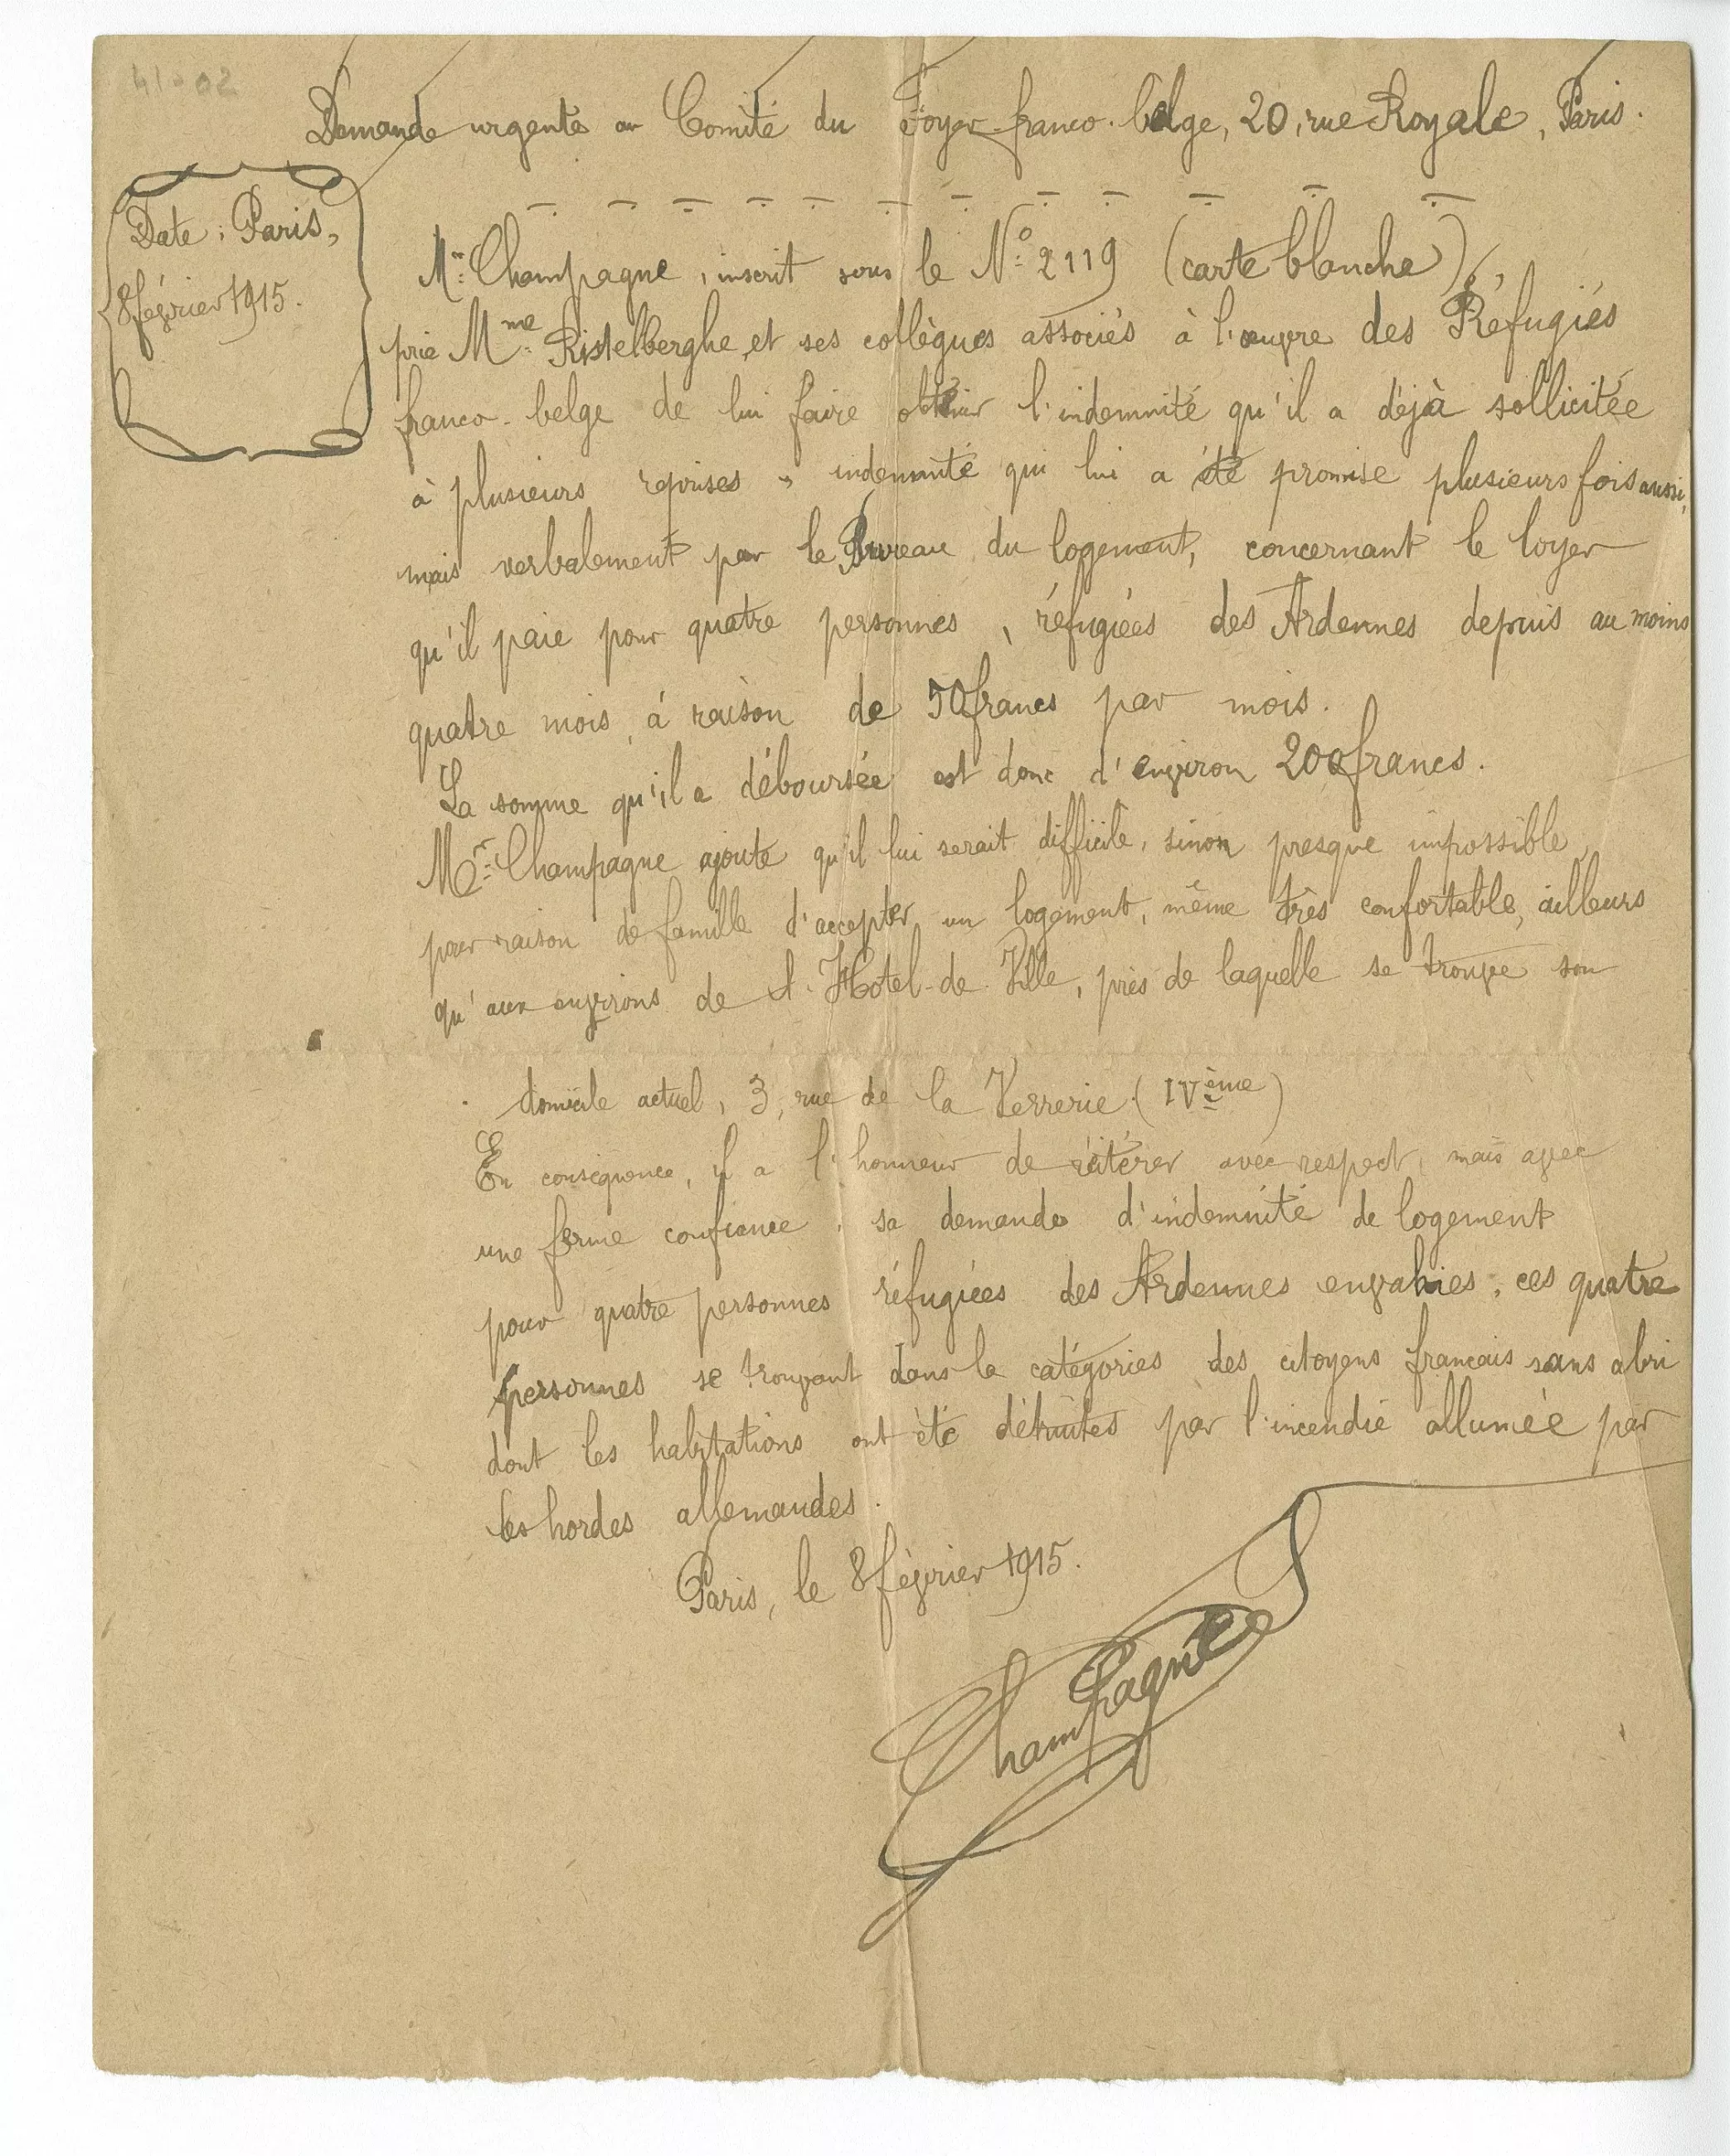 41-02
Demande urgente au Comité du Foyer franco-belge, 20, rue Royale, Paris.
Date : Paris,
8 février 1915.
Mr. Champagne, inscrit sous le No. 2119 (carte blanche),
prie Mme. Ristelberghe, et ses collègues associés à l'œuvre des Réfugiés
franco-belge de lui faire obtenir l'indemnité qu'il a déjà sollicitée
à plusieurs reprises, indemnité qui lui a été promise plusieurs fois aussi,
mais verbalement par le Bureau du logement, concernant le loyer
qu'il paie pour quatre personnes, réfugiées des Ardennes depuis au moins
quatre mois, à raison de 50 francs par mois.
La somme qu'il a déboursée est donc d'environ 200 francs.
Mr. Champagne ajoute qu'il lui serait difficile, sinon presque impossible,
pour raison de famille d'accepter un logement, même très confortable, ailleurs
qu'aux environs de l'Hotel-de-Ville, près de laquelle se trouve son
domicile actuel, 3, rue de la Verrerie (IVème)
En conséquence, il a l'honneur de réitérer avec respect, mais avec
une ferme confiance, sa demande d'indemnité de logement
pour quatre personnes réfugiées des Ardennes envahies, ces quatre
personnes se trouvant dans la catégories des citoyens francais sans abri
dont les habitations ont été détruites par l'incendie allumée par
les hordes allemandes.
Paris, le 8 février 1915.
Champagne